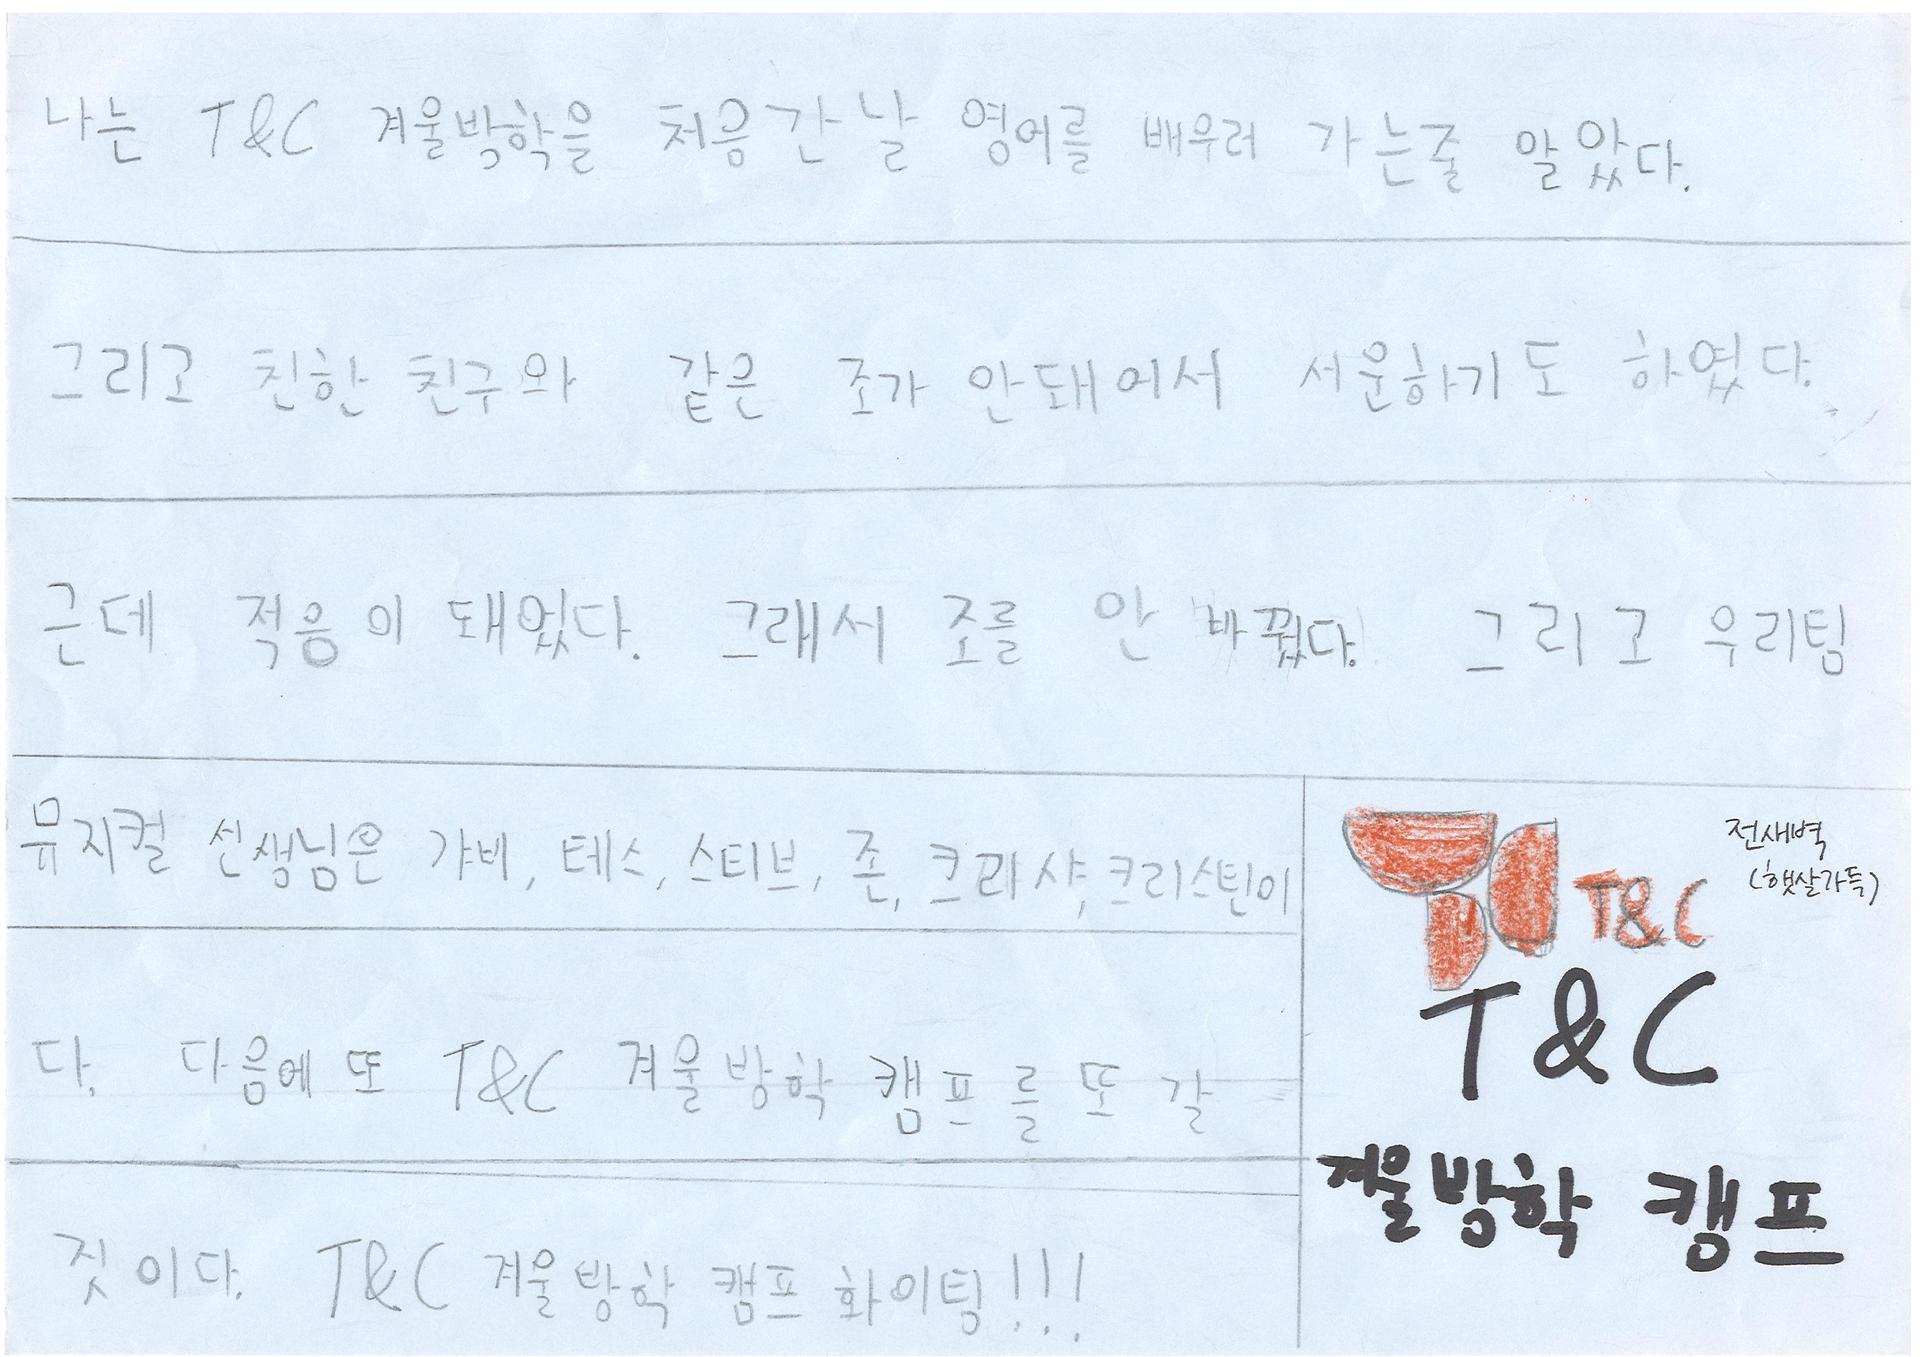 나는 T&C 겨울방학을 처음간날 영어를 배우러 가는줄 알았다.
그리고 친한 친구와 같은 조가 안돼어서 서운하기도 하였다.
근데 적응이 돼었다. 그래서 조를 안 바꿨다. 그리고 우리팀
뮤지컬 선생님은 갸비, 테스, 스티브, 존, 크라샤, 크리스틴이
다. 다음에 또 T&C 겨울방학 캠프를 또 갈
짓이다. T&C 겨울방학 캠프 화이팅!!!
T&C
전새벽
(햇살가득)
T&C
겨울방학 캠프